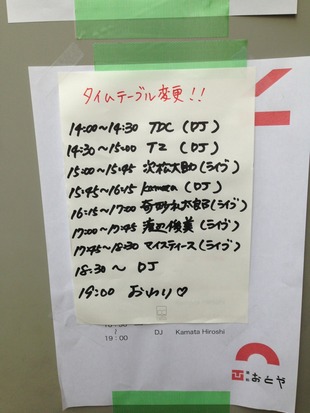 タイムテーブル変更!!
14:00~14:30 TDC (DJ)
14:30~15:00 TZ (DJ)
15:00~15:45 次松大助(ライブ)
15:45~16:15 Kamata (DJ)
16:15~17:00 奇妙礼太郎(ライブ)
17:00~17:45 渡辺俊美(ライブ)
17:45~18:30 マイスティース(ライブ)
18:30~ DJ
19:00 おわり♡
~
19:00
DJ Kamata Hiroshi
おとや